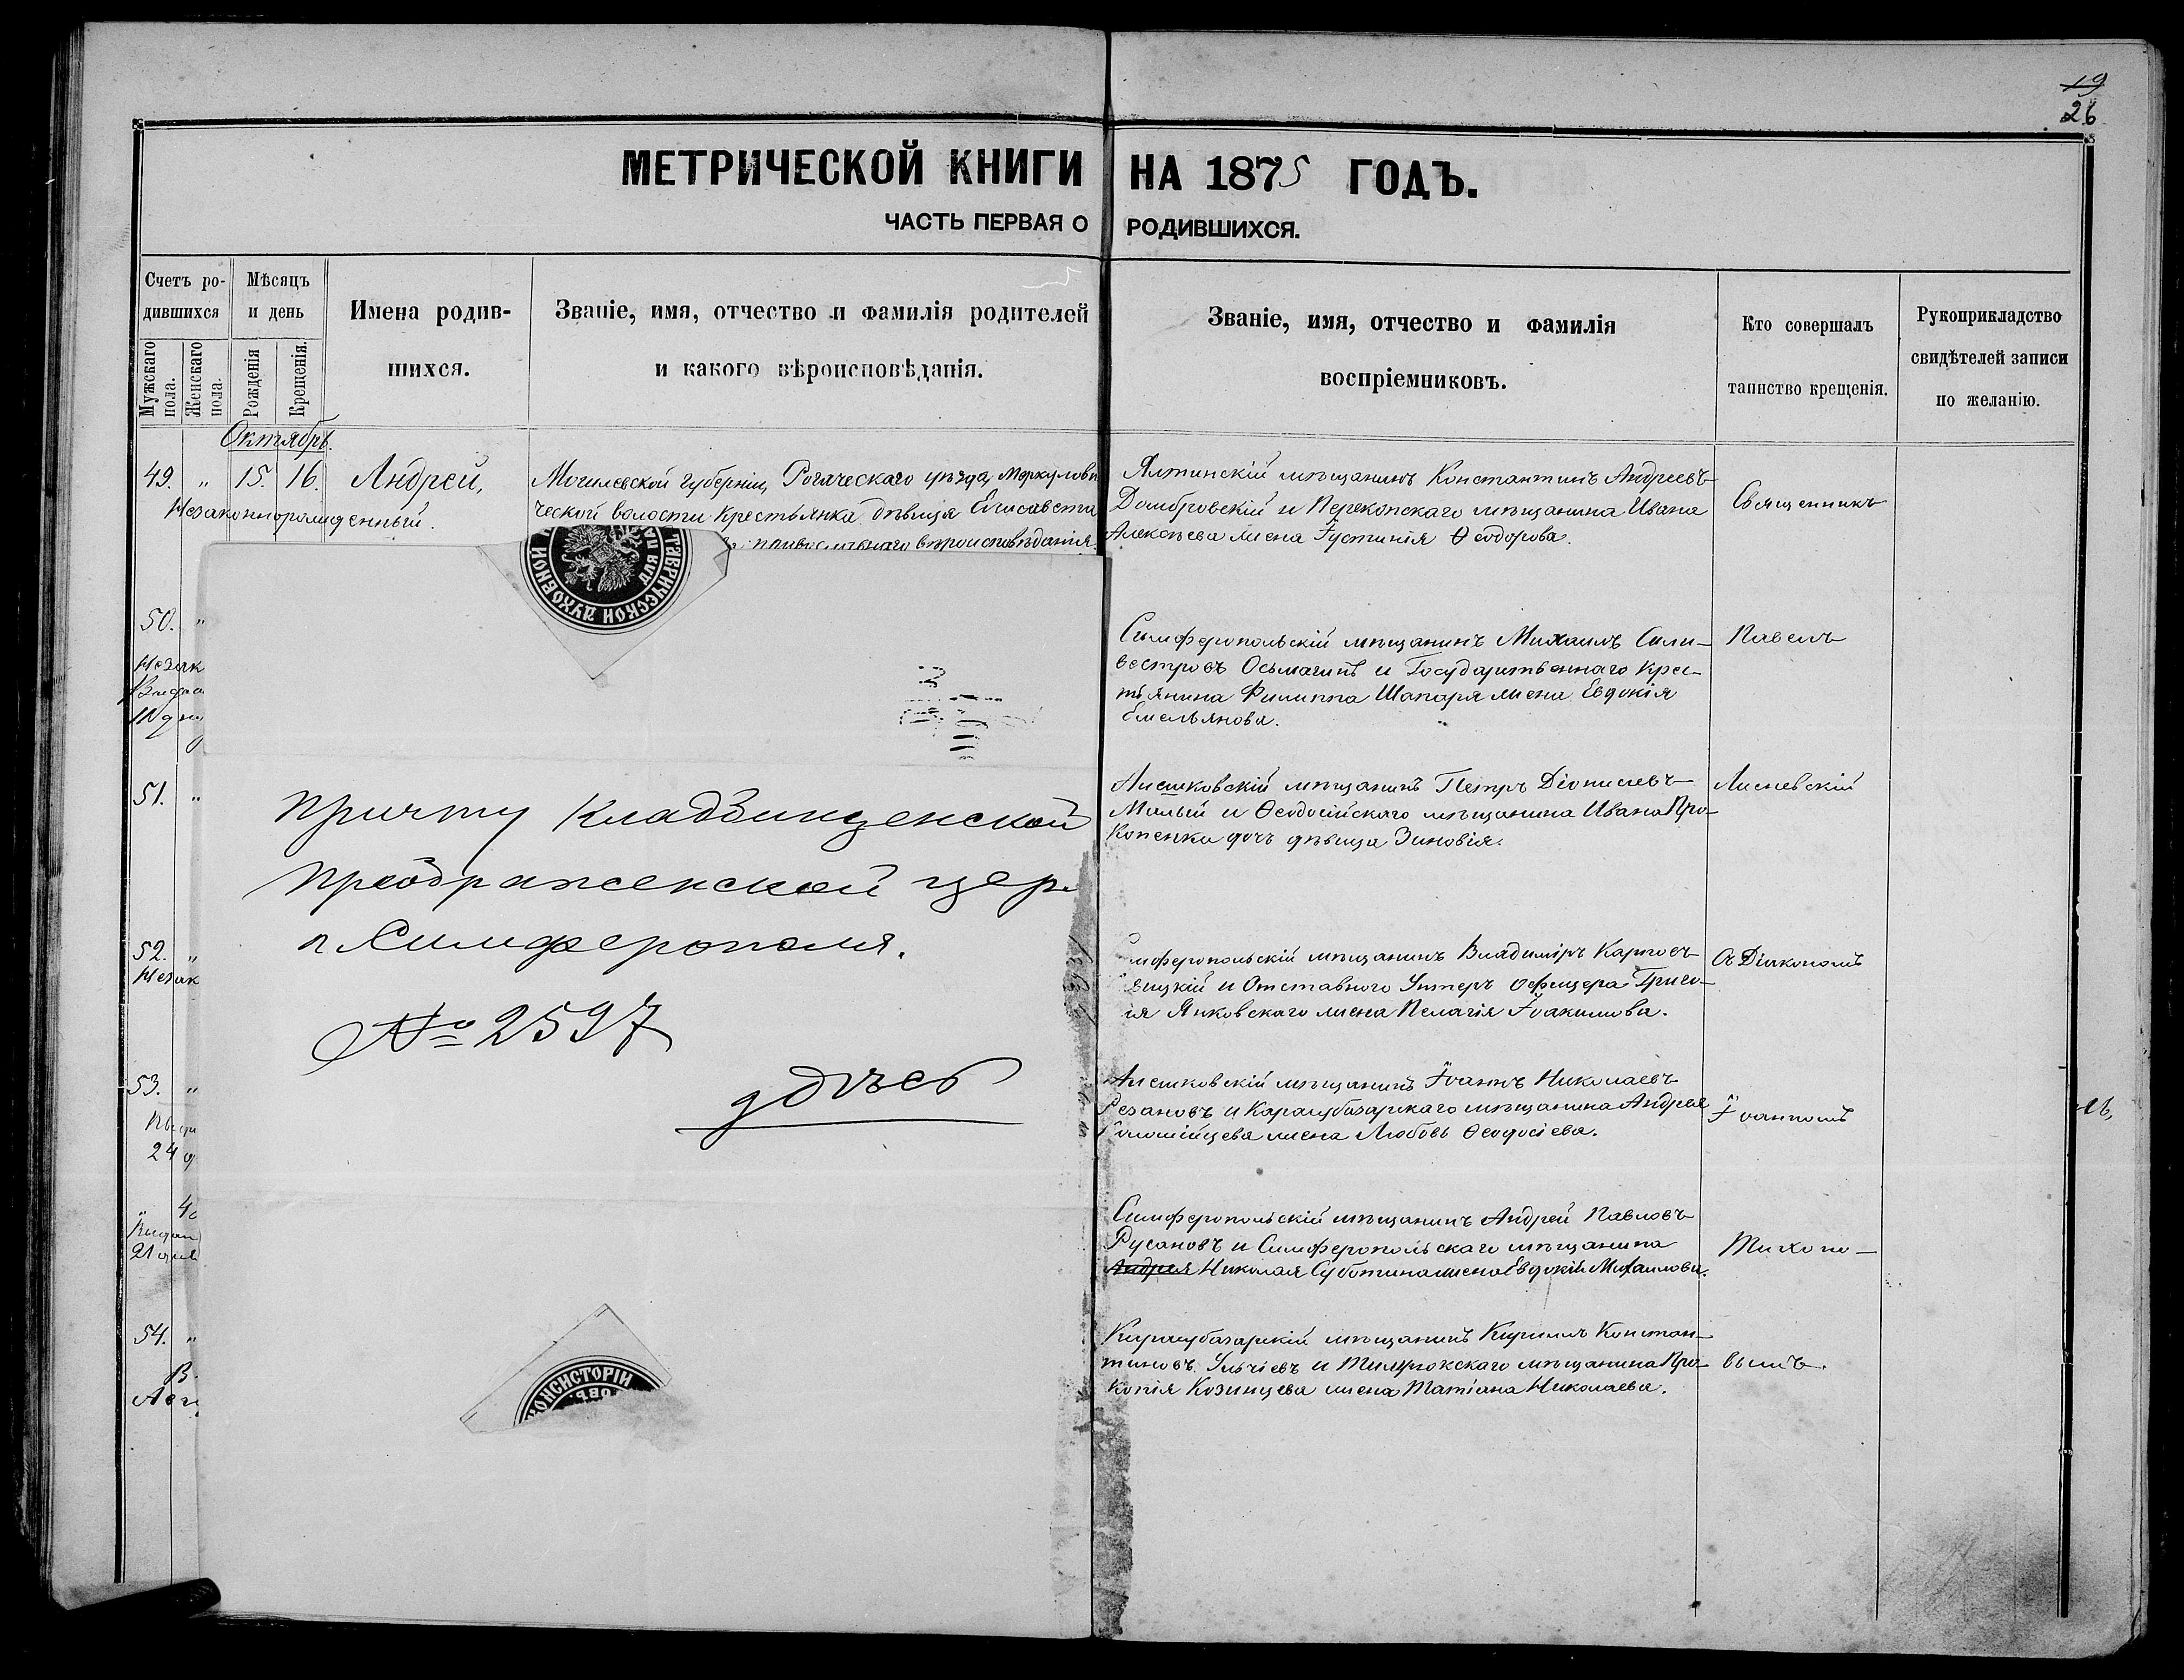 19
26
МЕТРИЧЕСКОЙ КНИГИ НА 1875 ГОДЪ.
ЧАСТЬ ПЕРВАЯ О РОДИВШИХСЯ.
Счетъ родившихся
Мужскаго пола.
Женскаго пола.
Мѣсяцъ и день
Рожденія
Крещенія.
Имена родив-
шихся.
Званіе, имя, отчество и фамилія родителей
и какого вѣроисповѣданія.
Званіе, имя, отчество и фамилія
воспріемниковъ.
Кто совершалъ
таинство крещенія.
Рукоприкладство
свидѣтелей записи
по желанію.
Октябрь.
49. " 15. 16. Андрей,
Незаконнорожденный.
Могилевской губерніи, Рогаческаго уѣзда, Меркулови
ческой волости крестьянка дѣвица Елисавета
православнаго вѣроисповѣданія.
Ялтинскій мѣщанинъ Константинъ Андреевъ
Домбровскій и Перекопскаго мѣщанина Ивана
Алексѣева жена Іустинія Ѳеодорова.
Священникъ
50. "
Незак
Симферопольскій мѣщанинъ Михаилъ Сили-
вестровъ Осьмагинъ и Государственнаго крес-
тьянина Филиппа Шапаря жена Евдокія
Емельянова.
Павелъ
51. "
Алешковскій мѣщанинъ Петръ Діонисіевъ
Малый и Ѳеодосійскаго мѣщанина Ивана Про-
копенка дочь дѣвица Зиновія.
Лисневскій
52. "
Незак
имферопольскій мѣщанинъ Владиміръ Карпов
вицкій и Отставного Унтеръ офицера Григо-
ія Янковскаго жена Пелагія Іоакимова.
съ Діакономъ
53. "
24
Алешковскій мѣщанинъ Іоаннъ Николаевъ
Резановъ и Карасубазарскаго мѣщанина Андрея
жена Любовь Ѳеодосіева.
Іоанномъ
"
Выдан
21
Симферопольскій мѣщанинъ Андрей Павловъ
Русановъ и Симферопольскаго мѣщанина
Андрея Николая Суботина жена Евдокія Михаилова.
Тихоно-
54. "
Карасубазарскій мѣщанинъ Кириллъ Констан-
тиновъ и мѣщанина Про-
копія Козинцева жена Татіана Николаева.
вымъ.
Причту Кладбищенской
Преображенской цер.
г. Симферополя.
№ 2597
здѣсь
ТАВРИЧЕСКОЙ ДУХОВНОЙ
КОНСИСТОРІИ